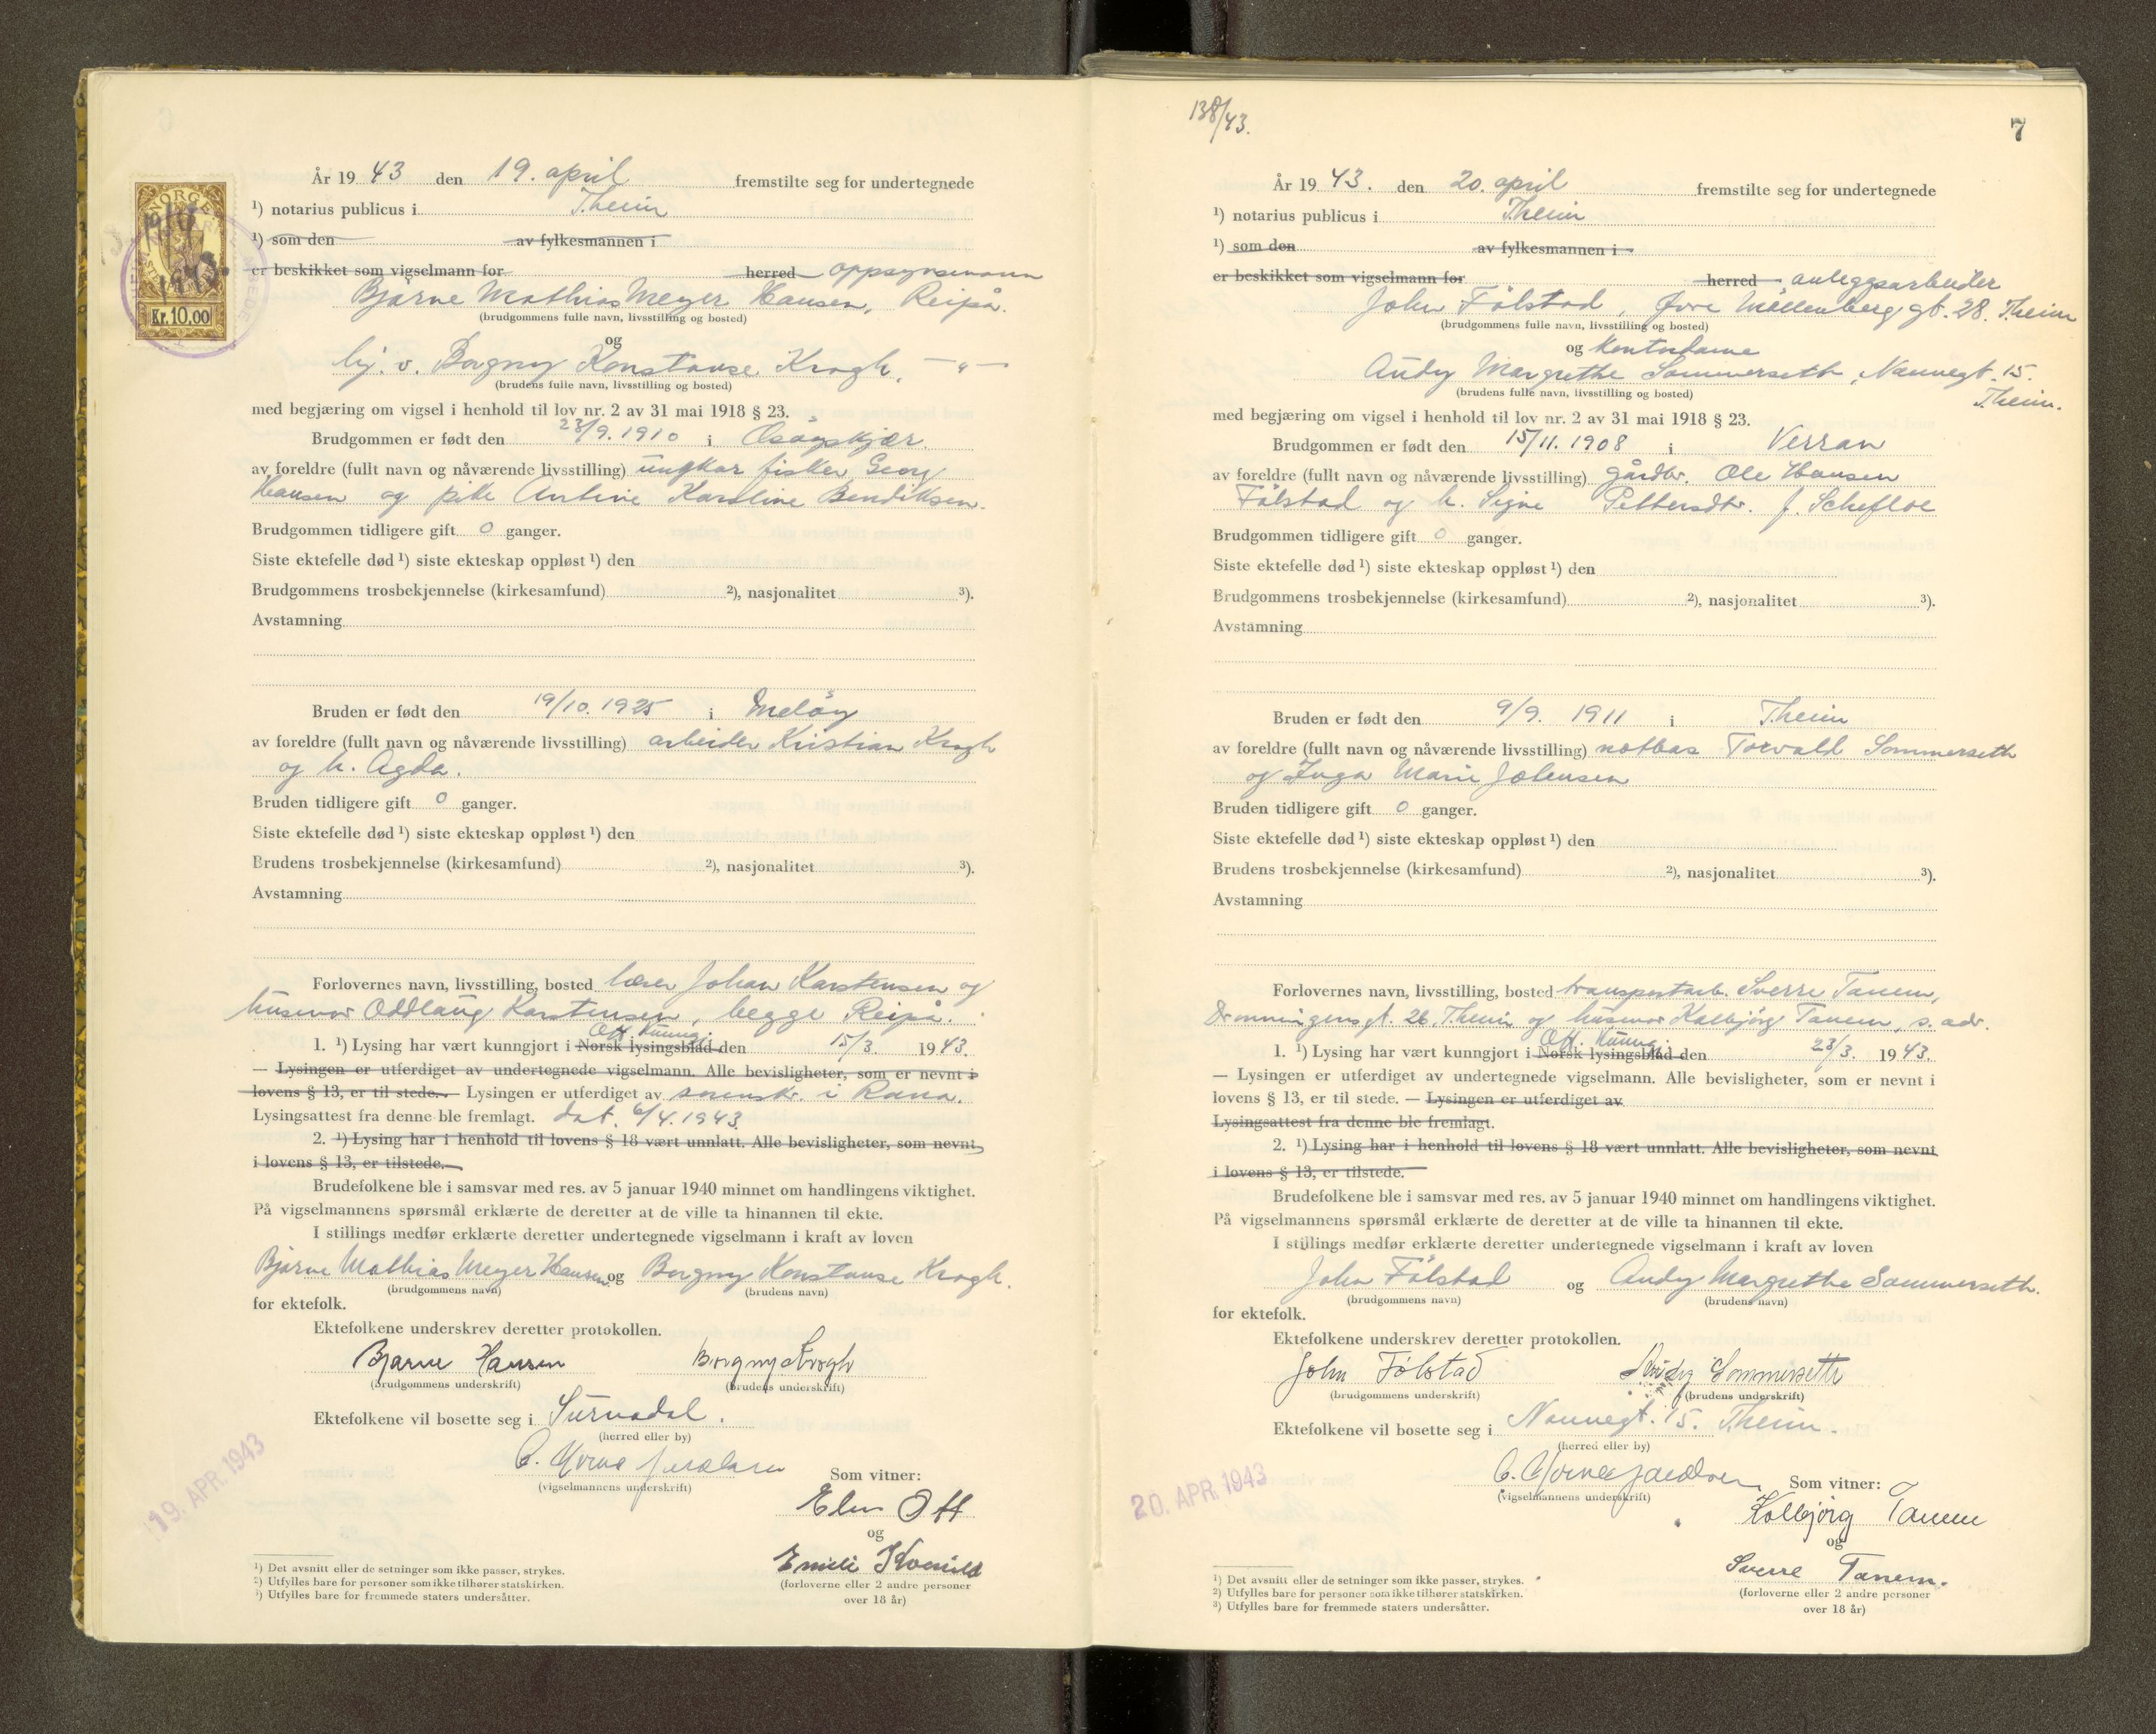 År 1943 den 19. april fremstilte seg for undertegnede
¹) notarius publicus i Theim
¹) som den av fylkesmannen i
er beskikket som vigselmann for herred oppsynsmann
Bjarne Mathias Meyer Hansen, Reipå.
(brudgommens fulle navn, livsstilling og bosted)
og
hj. v. Borgny Konstanse Krogh, — " —
(brudens fulle navn, livsstilling og bosted)
med begjæring om vigsel i henhold til lov nr. 2 av 31 mai 1918 § 23.
Brudgommen er født den 23/9. 1910 i
av foreldre (fullt navn og nåværende livsstilling) ungkar fisker Georg
Hansen og pike Antine Karoline Bendiksen.
Brudgommen tidligere gift 0 ganger.
Siste ektefelle død ¹) siste ekteskap oppløst ¹) den
Brudgommens trosbekjennelse (kirkesamfund) ²), nasjonalitet ³).
Avstamning
Bruden er født den 19/10. 1925 i Meløy
av foreldre (fullt navn og nåværende livsstilling) arbeider Kristian Krogh
og h. Agda.
Bruden tidligere gift 0 ganger.
Siste ektefelle død ¹) siste ekteskap oppløst ¹) den
Brudens trosbekjennelse (kirkesamfund) ²), nasjonalitet ³).
Avstamning
Forlovernes navn, livsstilling, bosted lærer Johan Karstensen og
husmor Oddlaug Karstensen, begge Reipå.
Off. kunng.
1. ¹) Lysing har vært kunngjort i Norsk lysingsblad den 15/3. 1943.
— Lysingen er utferdiget av undertegnede vigselmann. Alle bevisligheter, som er nevnt i
lovens § 13, er til stede. — Lysingen er utferdiget av sorenskr. i Rana.
Lysingsattest fra denne ble fremlagt. dat. 6/4. 1943
2. ¹) Lysing har i henhold til lovens § 18 vært unnlatt. Alle bevisligheter, som nevnt
i lovens § 13, er tilstede.
Brudefolkene ble i samsvar med res. av 5 januar 1940 minnet om handlingens viktighet.
På vigselmannens spørsmål erklærte de deretter at de ville ta hinannen til ekte.
I stillings medfør erklærte deretter undertegnede vigselmann i kraft av loven
Bjarne Mathias Meyer Hansen og Borgny Konstanse Krogh.
(brudgommens navn) (brudens navn)
for ektefolk.
Ektefolkene underskrev deretter protokollen.
Bjarne Hansen Borgny Krogh
(brudgommens underskrift) (brudens underskrift)
Ektefolkene vil bosette seg i Surnadal.
(herred eller by)
(vigselmannens underskrift)
Som vitner:
Elen Ott
og
Emili
(forloverne eller 2 andre personer
over 18 år)
19. APR. 1943
¹) Det avsnitt eller de setninger som ikke passer, strykes.
²) Utfylles bare for personer som ikke tilhører statskirken.
³) Utfylles bare for fremmede staters undersåtter.
NORGE
19/4
1943.
Kr. 10.00
138/43.
7
År 1943. den 20. april fremstilte seg for undertegnede
¹) notarius publicus i Theim
¹) som den av fylkesmannen i
er beskikket som vigselmann for herred anleggsarbeider
John Følstad, Øvre Møllenberg gt. 28. Theim
(brudgommens fulle navn, livsstilling og bosted)
og Kontordame
Audy Margrethe Sommerseth, Nannegt. 15.
Theim.
(brudens fulle navn, livsstilling og bosted)
med begjæring om vigsel i henhold til lov nr. 2 av 31 mai 1918 § 23.
Brudgommen er født den 15/11. 1908 i Verran
av foreldre (fullt navn og nåværende livsstilling) gårdbr. Ole Hansen
Følstad og h. Signe Pettersdtr. f. Schefloe
Brudgommen tidligere gift 0 ganger.
Siste ektefelle død ¹) siste ekteskap oppløst ¹) den
Brudgommens trosbekjennelse (kirkesamfund) ²), nasjonalitet ³).
Avstamning
Bruden er født den 9/9. 1911 i Theim
av foreldre (fullt navn og nåværende livsstilling) notbas Torvald Sommerseth
og Inga Marie Johnsen
Bruden tidligere gift 0 ganger.
Siste ektefelle død ¹) siste ekteskap oppløst ¹) den
Brudens trosbekjennelse (kirkesamfund) ²), nasjonalitet ³).
Avstamning
Forlovernes navn, livsstilling, bosted transportarb. Sverre Tanem,
Dronningensgt. 26. Theim og husmor Kolbjørg Tanem, s. adr.
Off. Kunng.
1. ¹) Lysing har vært kunngjort i Norsk lysingsblad den 23/3. 1943.
— Lysingen er utferdiget av undertegnede vigselmann. Alle bevisligheter, som er nevnt i
lovens § 13, er til stede. — Lysingen er utferdiget av
Lysingsattest fra denne ble fremlagt.
2. ¹) Lysing har i henhold til lovens § 18 vært unnlatt. Alle bevisligheter, som nevnt
i lovens § 13, er tilstede.
Brudefolkene ble i samsvar med res. av 5 januar 1940 minnet om handlingens viktighet.
På vigselmannens spørsmål erklærte de deretter at de ville ta hinannen til ekte.
I stillings medfør erklærte deretter undertegnede vigselmann i kraft av loven
John Følstad og Audy Margrethe Sommerseth.
(brudgommens navn) (brudens navn)
for ektefolk.
Ektefolkene underskrev deretter protokollen.
John Følstad Audy Sommerseth
(brudgommens underskrift) (brudens underskrift)
Ektefolkene vil bosette seg i Nannegt. 15. Theim.
(herred eller by)
(vigselmannens underskrift)
Som vitner:
Kolbjørg Tanem
og
Sverre Tanem.
(forloverne eller 2 andre personer
over 18 år)
20. APR. 1943
¹) Det avsnitt eller de setninger som ikke passer, strykes.
²) Utfylles bare for personer som ikke tilhører statskirken.
³) Utfylles bare for fremmede staters undersåtter.